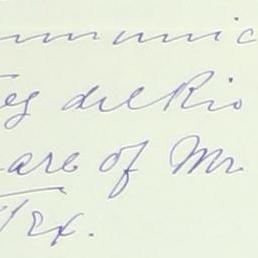 mmunic
eg del Rio
are of Mr
Tex.